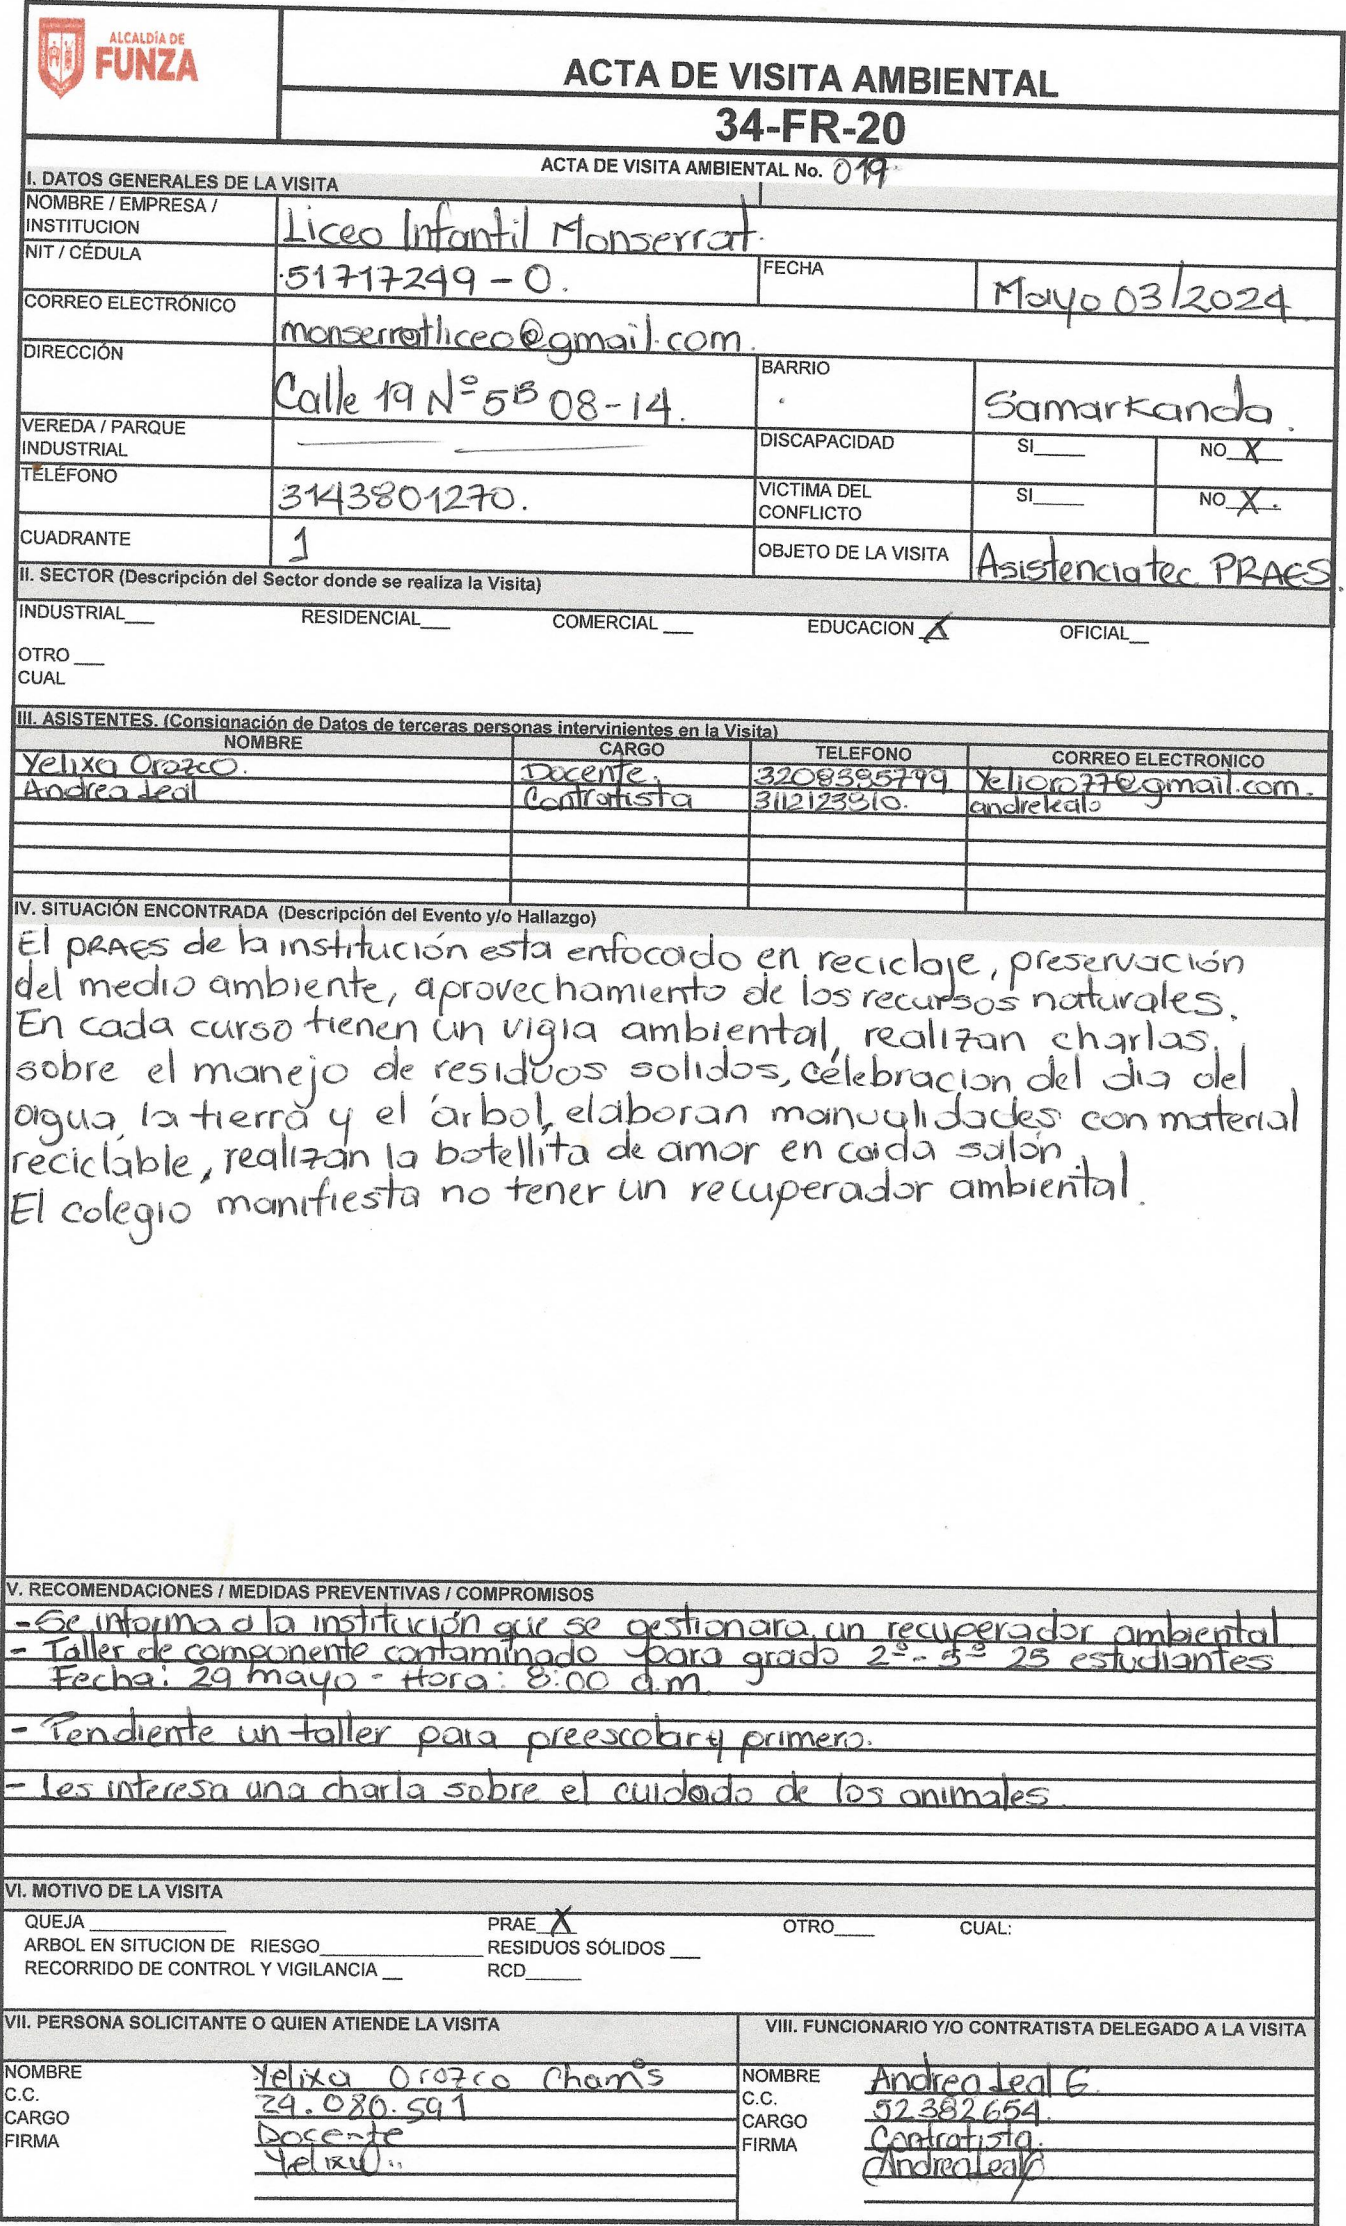 ALCALDÍA DE
FUNZA
ACTA DE VISITA AMBIENTAL
34-FR-20
ACTA DE VISITA AMBIENTAL No. 019
I. DATOS GENERALES DE LA VISITA
NOMBRE / EMPRESA /
INSTITUCION Liceo Infantil Monserrat.
NIT / CÉDULA 51717249 - 0. FECHA Mayo 03/2024
CORREO ELECTRÓNICO monserratliceo@gmail.com.
DIRECCIÓN Calle 19 Nº 5B 08-14. BARRIO Samarkanda.
VEREDA / PARQUE
INDUSTRIAL DISCAPACIDAD SI____ NO X
TELÉFONO 3143801270. VICTIMA DEL
CONFLICTO SI____ NO X.
CUADRANTE 1 OBJETO DE LA VISITA Asistencia tec PRAES.
II. SECTOR (Descripción del Sector donde se realiza la Visita)
INDUSTRIAL___ RESIDENCIAL___ COMERCIAL ___ EDUCACION X OFICIAL__
OTRO ___
CUAL
III. ASISTENTES. (Consignación de Datos de terceras personas intervinientes en la Visita)
NOMBRE CARGO TELEFONO CORREO ELECTRONICO
Yelixa Orozco. Docente. 3208385799 Yelioro77@gmail.com.
Andrea Leal Contratista 3112123910. andrelealo
IV. SITUACIÓN ENCONTRADA (Descripción del Evento y/o Hallazgo)
El PRAES de la institución esta enfocado en reciclaje, preservación
del medio ambiente, aprovechamiento de los recursos naturales.
En cada curso tienen un vigia ambiental, realizan charlas
sobre el manejo de residuos solidos, celebracion del dia del
agua, la tierra y el árbol, elaboran manualidades con material
reciclable, realizan la botellita de amor en cada salón.
El colegio manifiesta no tener un recuperador ambiental.
V. RECOMENDACIONES / MEDIDAS PREVENTIVAS / COMPROMISOS
- Se informa a la institución que se gestionara un recuperador ambiental
- Taller de componente contaminado para grado 2º - 5º 25 estudiantes
Fecha: 29 mayo - Hora: 8:00 a.m.
- Pendiente un taller para preescolar y primero.
- Les interesa una charla sobre el cuidado de los animales.
VI. MOTIVO DE LA VISITA
QUEJA ____ PRAE X OTRO____ CUAL:
ARBOL EN SITUCION DE RIESGO____ RESIDUOS SÓLIDOS ___
RECORRIDO DE CONTROL Y VIGILANCIA __ RCD____
VII. PERSONA SOLICITANTE O QUIEN ATIENDE LA VISITA VIII. FUNCIONARIO Y/O CONTRATISTA DELEGADO A LA VISITA
NOMBRE Yelixa Orozco NOMBRE Andrea Leal G.
C.C. 24.080.591 C.C. 52382654.
CARGO Docente CARGO Contratista.
FIRMA Yelixa FIRMA Andrea Leal G